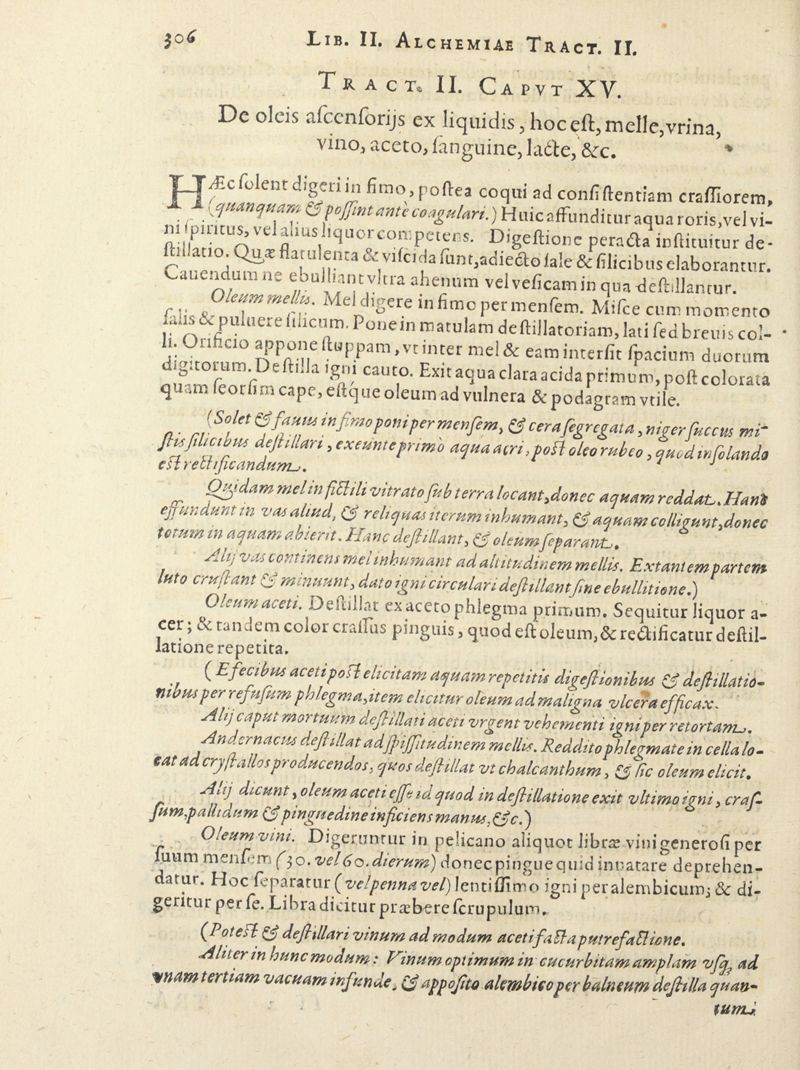 306 LIB. II. ALCHEMIAE TRACT. II.
TRACT. II. CAPVT XV.
De oleis aſcenſorijs ex liquidis, hoc eſt, melle, vrina,
vino, aceto, ſanguine, lacte, &c.
HÆc ſolent digeri in fimo, poſtea coqui ad conſiſtentiam craſſiorem,
(quanquam & poſſint ante coagulari.) Huic affunditur aqua roris, vel vi-
ni ſpiritus, vel alius liquor competens. Digeſtione peracta inſtituitur de-
ſtillatio. Quæ flatulenta & viſcida ſunt, adiecto ſale & ſilicibus elaborantur.
Cauendum ne ebulliant vltra ahenum vel veſicam in qua deſtillantur.
Oleum mellis. Mel digere in fimo per menſem. Miſce cum momento
ſalis & puluere ſilicum. Pone in matulam deſtillatoriam, lati ſed breuis col-
li. Orificio appone ſtuppam, vt inter mel & eam interſit ſpacium duorum
digitorum. Deſtilla igni cauto. Exit aqua clara acida primum, poſt colorata
quam ſeorſim cape, eſtque oleum ad vulnera & podagram vtile.
(Solet & fauus in fimo poni per menſem, & cera ſegregata, niger ſuccus mi-
ſtis ſilicibus deſtillari, exeunte primò aqua acri, poſt oleo rubeo, quod inſolando
eſt rectificandum.
Quidam mel in fictili vitrato ſub terra locant, donec aquam reddat. Hanc
effundunt in vas aliud, & reliquas iterum inhumant, & aquam colligunt, donec
totum in aquam abierit. Hanc deſtillant, & oleum ſeparant.
Alij vas continens mel inhumant ad altitudinem mellis. Extantem partem
luto cruſtant & minuunt, dato igni circulari deſtillant ſine ebullitione.)
Oleum aceti. Deſtillat ex aceto phlegma primum. Sequitur liquor a-
cer; & tandem color craſſus pinguis, quod eſt oleum, & rectificatur deſtil-
latione repetita.
(E fecibus aceti poſt elicitam aquam repetitis digeſtionibus & deſtillatio-
nibus per refuſum phlegma, item elicitur oleum ad maligna vlcera efficax.
Alij caput mortuum deſtillati aceti vrgent vehementi igni per retortam.
Andernacus deſtillat ad ſpiſſitudinem mellis. Reddito phlegmate in cella lo-
cat ad cryſtallos producendos, quos deſtillat vt chalcanthum, & ſic oleum elicit.
Alij dicunt, oleum aceti eſſe id quod in deſtillatione exit vltimo igni, craſ-
ſum, pallidum & pinguedine inficiens manus, &c.)
Oleum vini. Digeruntur in pelicano aliquot libræ vini generoſi per
ſuum menſem (30. vel 60. dierum) donec pingue quid innatare deprehen-
datur. Hoc ſeparatur (vel penna vel) lentiſſimo igni per alembicum; & di-
geritur per ſe. Libra dicitur præbere ſcrupulum.
(Poteſt & deſtillari vinum ad modum aceti facta putrefactione.
Aliter in hunc modum: Vinum optimum in cucurbitam amplam vſq; ad
vnam tertiam vacuam infunde, & appoſito alembico per balneum deſtilla quan-
tum